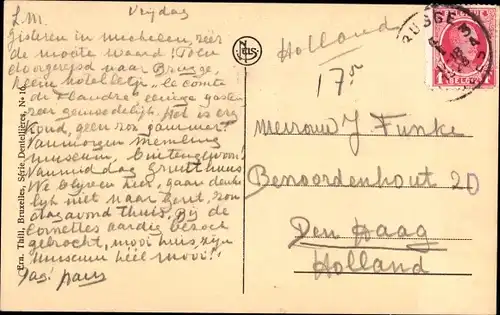 Vrijdag
L.M.
Gisteren in Mechelen, zeer
de moeite waard! Toen
doorgereisd naar Brugge,
klein hotelletje "le comte
de Flandre" eenige gasten
zeer gemoedelijk. Het is erg
koud, geen zon jammer!
Vanmorgen Memling
museum, buitengewoon!
Vanmiddag Gruuthuus
We blijven hier, gaan denke
lijk niet naar Gent, zon
dagavond thuis. Bij de
Cornettes aardig bezoek
gebracht, mooi huis, zijn
museum heel mooi!!
Dag!
Ern. Thill, Bruxelles, Série Dentellières, No 10
NELS
Holland
17.5
BRUGGE
Mevrouw J Funke
Benoordenhout 20
Den Haag
Holland